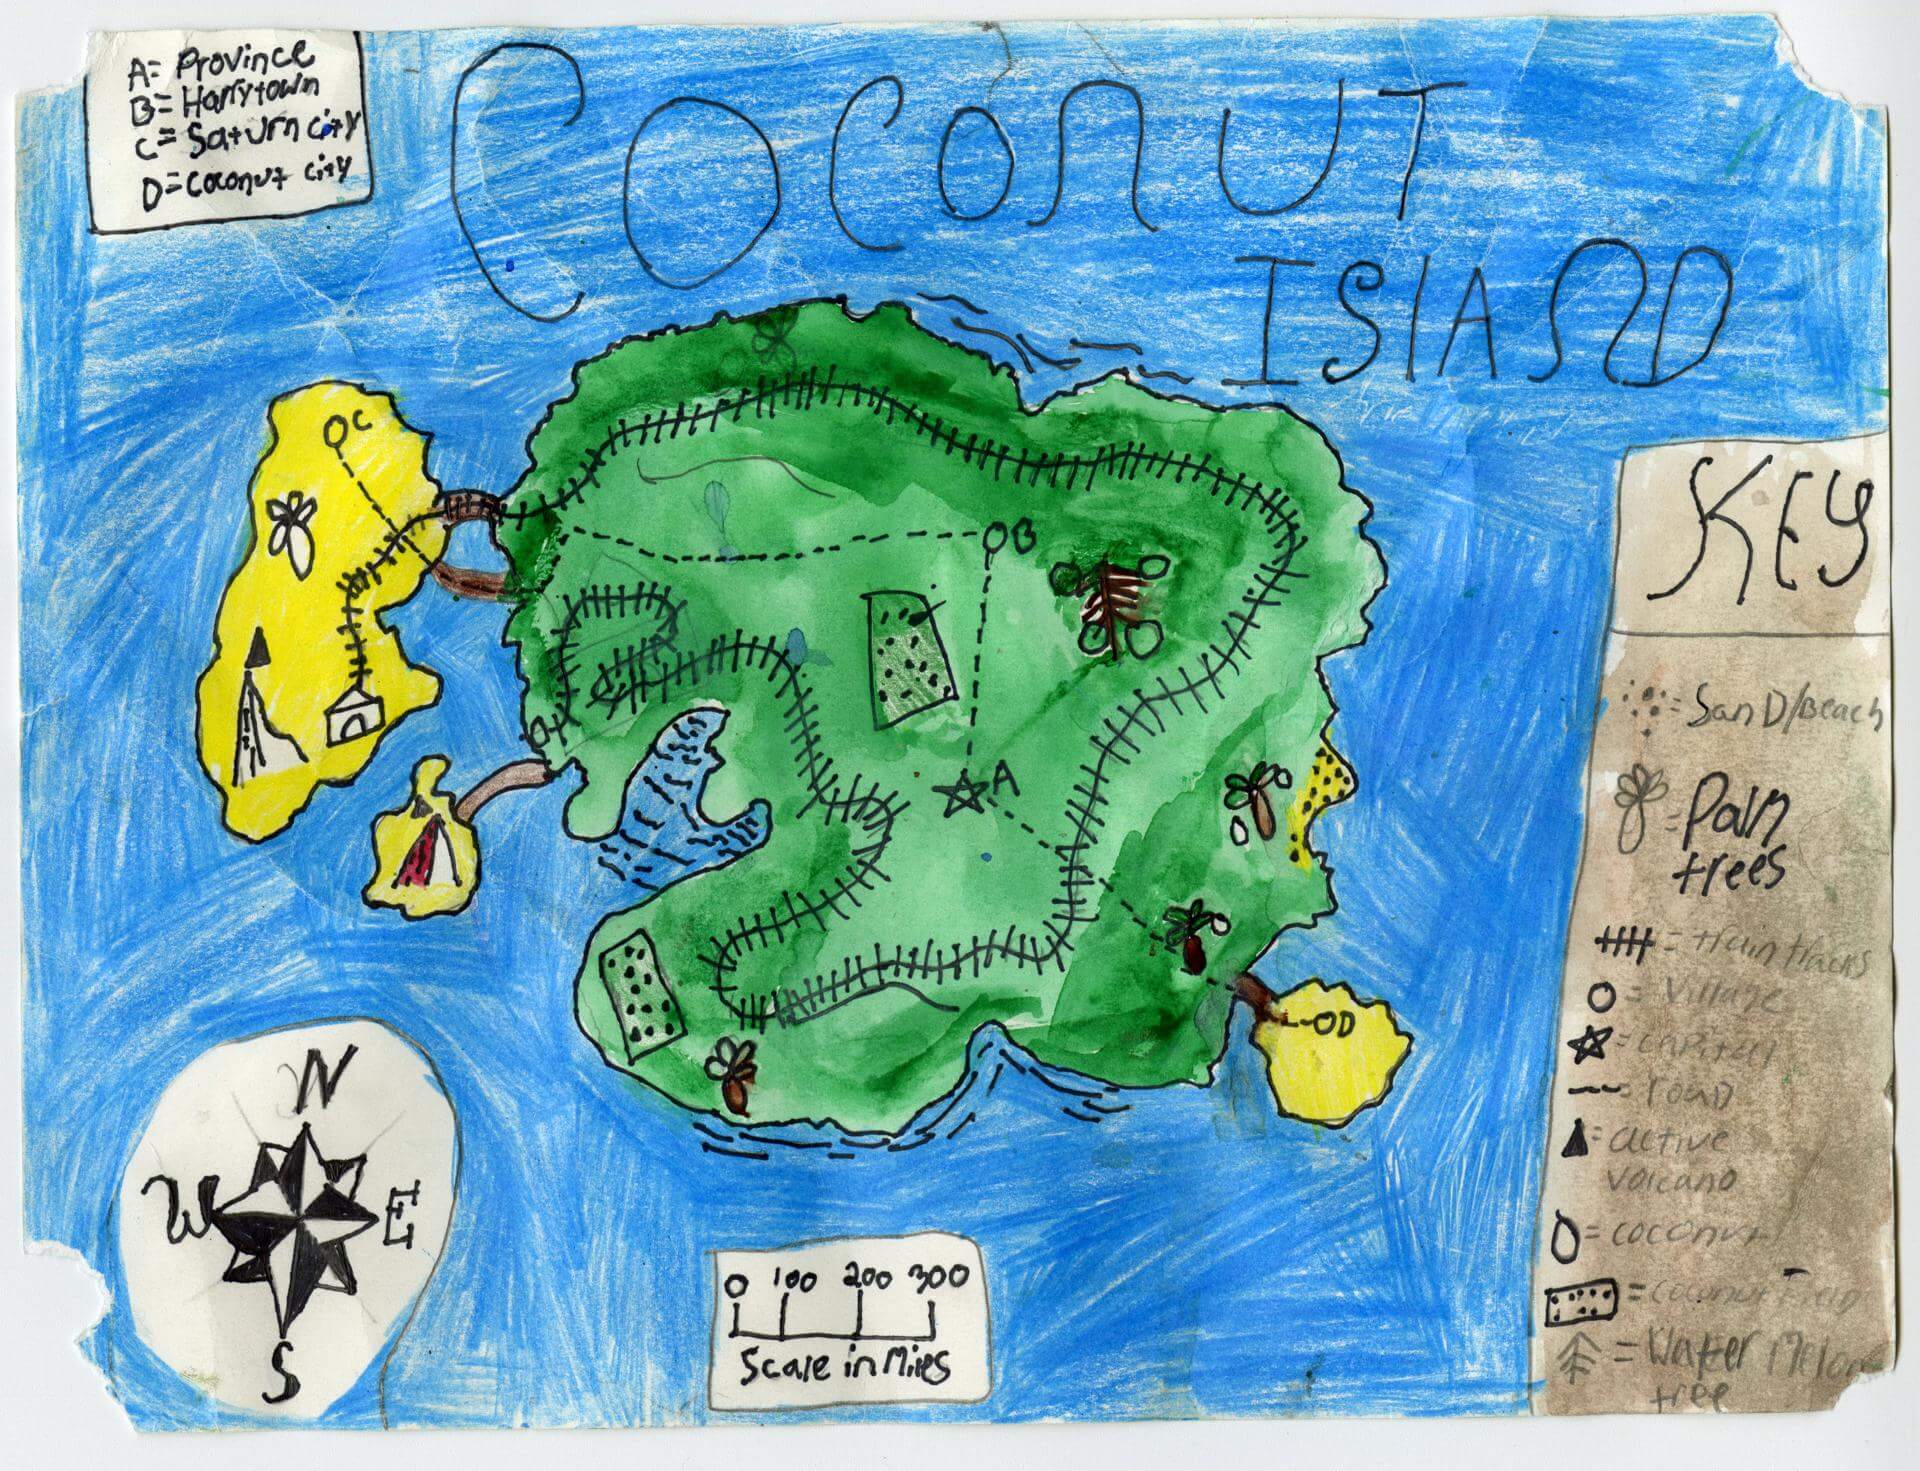 A= Province
B= Harrytown
C= Saturn city
D= Coconut city
COCONUT
ISLAND
C
B
A
D
KEY
= SanD/Beach
= Palm
trees
= train tracks
= Village
= capital
= roaD
= active
volcano
= coconut
= coconut Field
= Water Melon
tree
N
W E
S
0 100 200 300
Scale in Miles